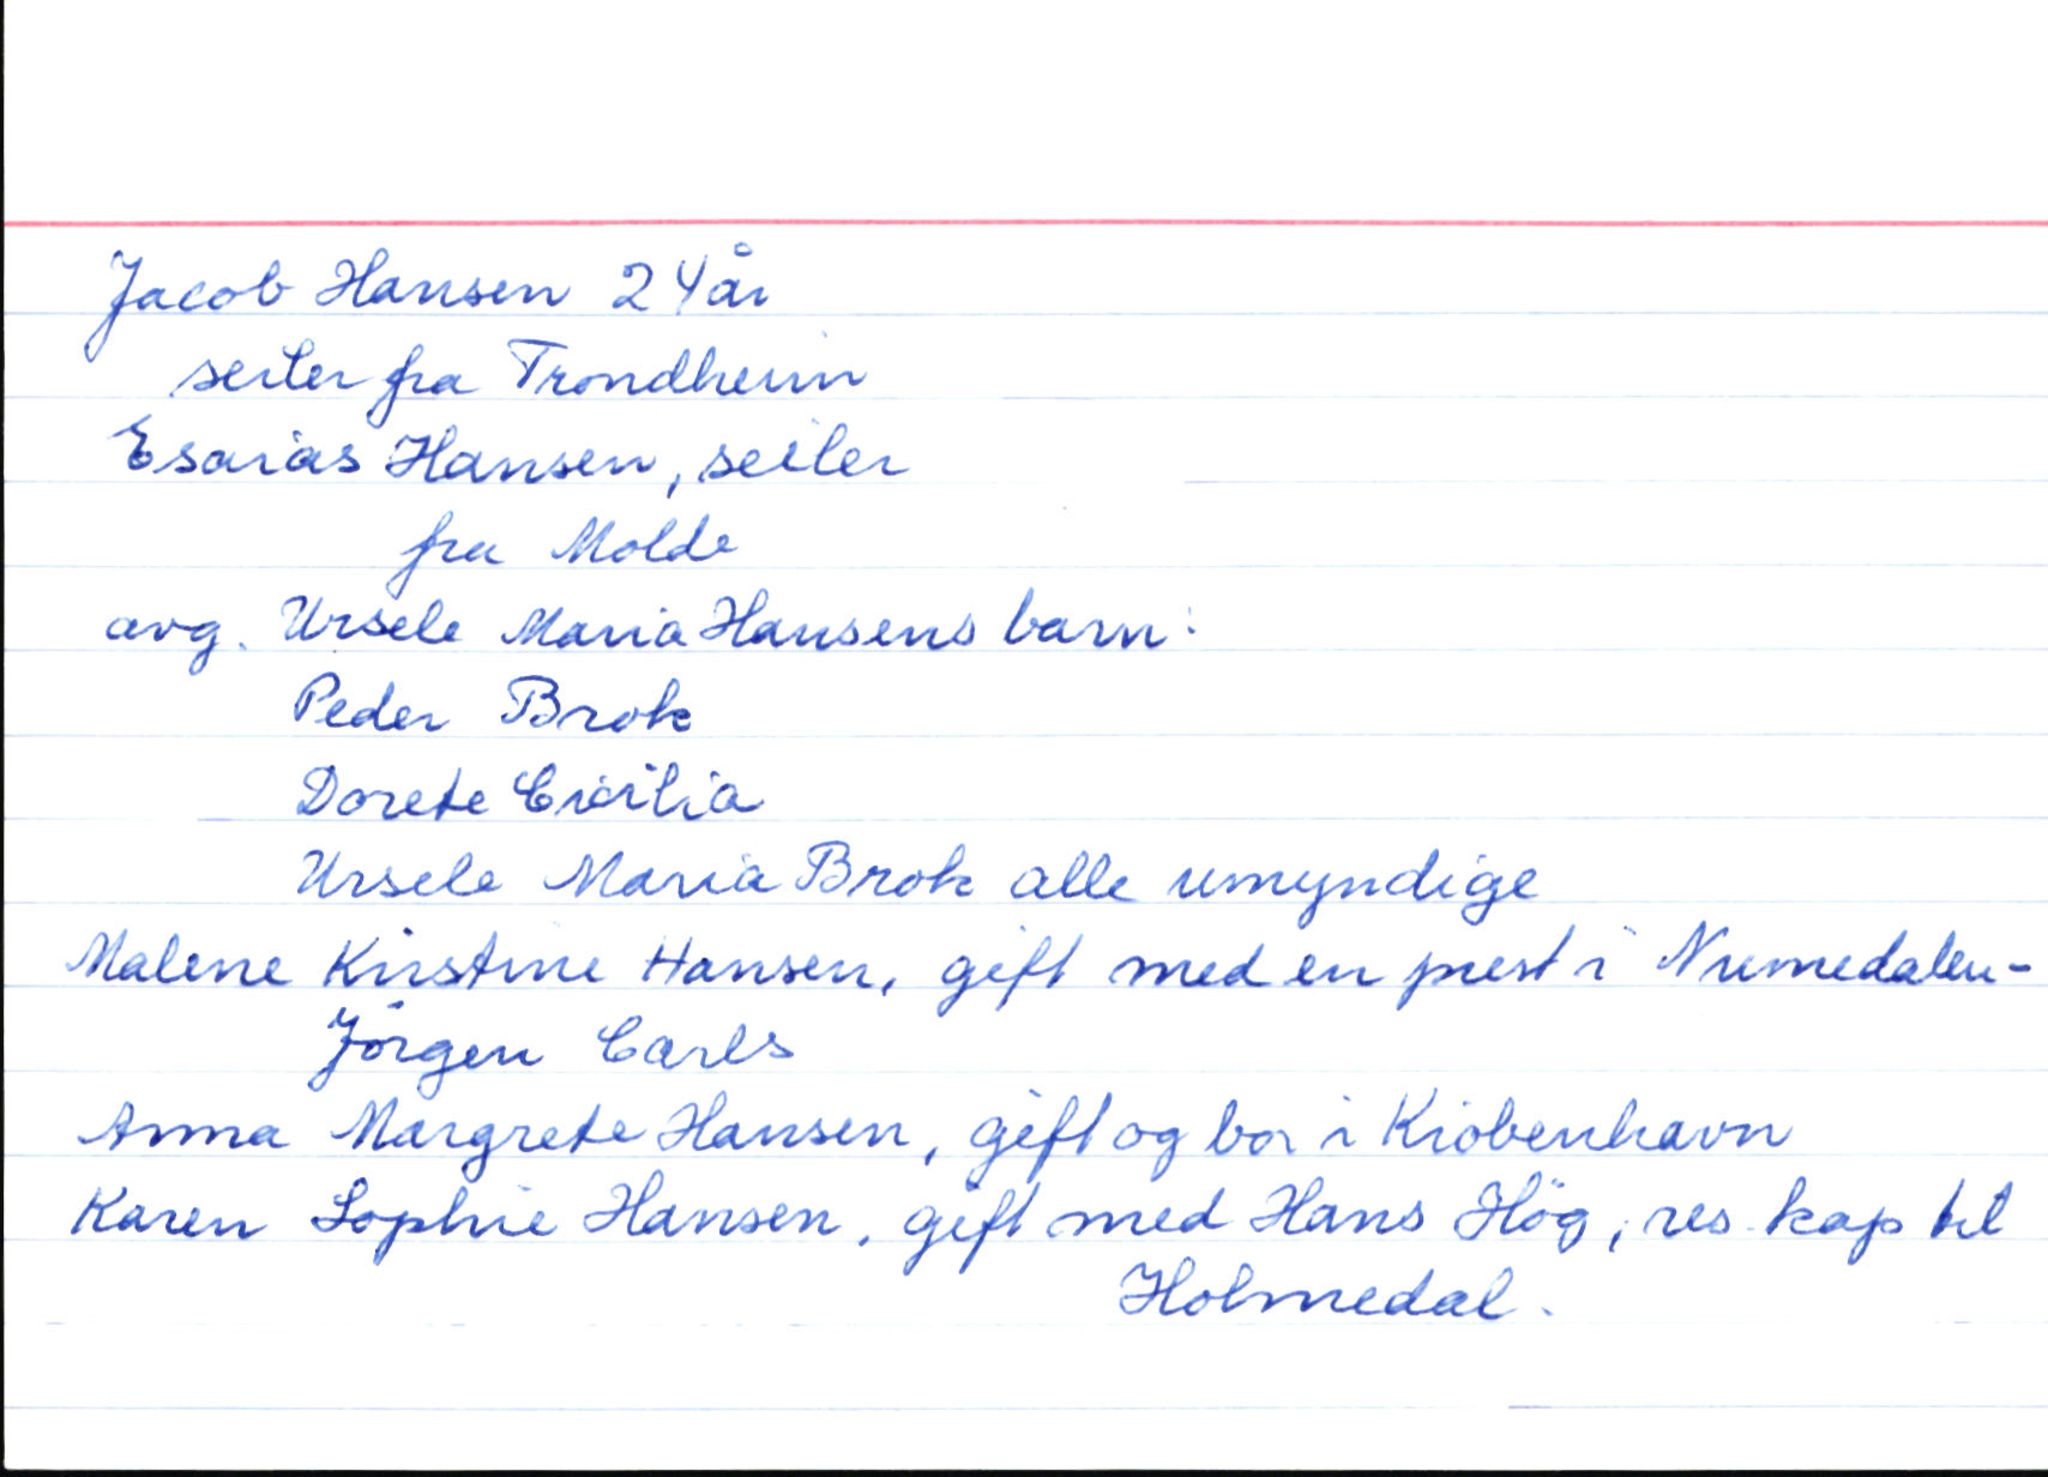 Jacob Hansen 24 år
seiler fra Trondheim
Esaias Hansen, seiler
fra Molde
avg. Ursele Maria Hansens barn:
Peder Brok
Dorete Cicilia
Ursele Maria Brok alle umyndige
Malene Kirstine Hansen, gift med en prest i Numedalen-
Jörgen Carls
Anna Margrete Hansen, gift og bor i Kiöbenhavn
Karen Sophie Hansen, gift med Hans Hög, res. kap til
Holmedal.